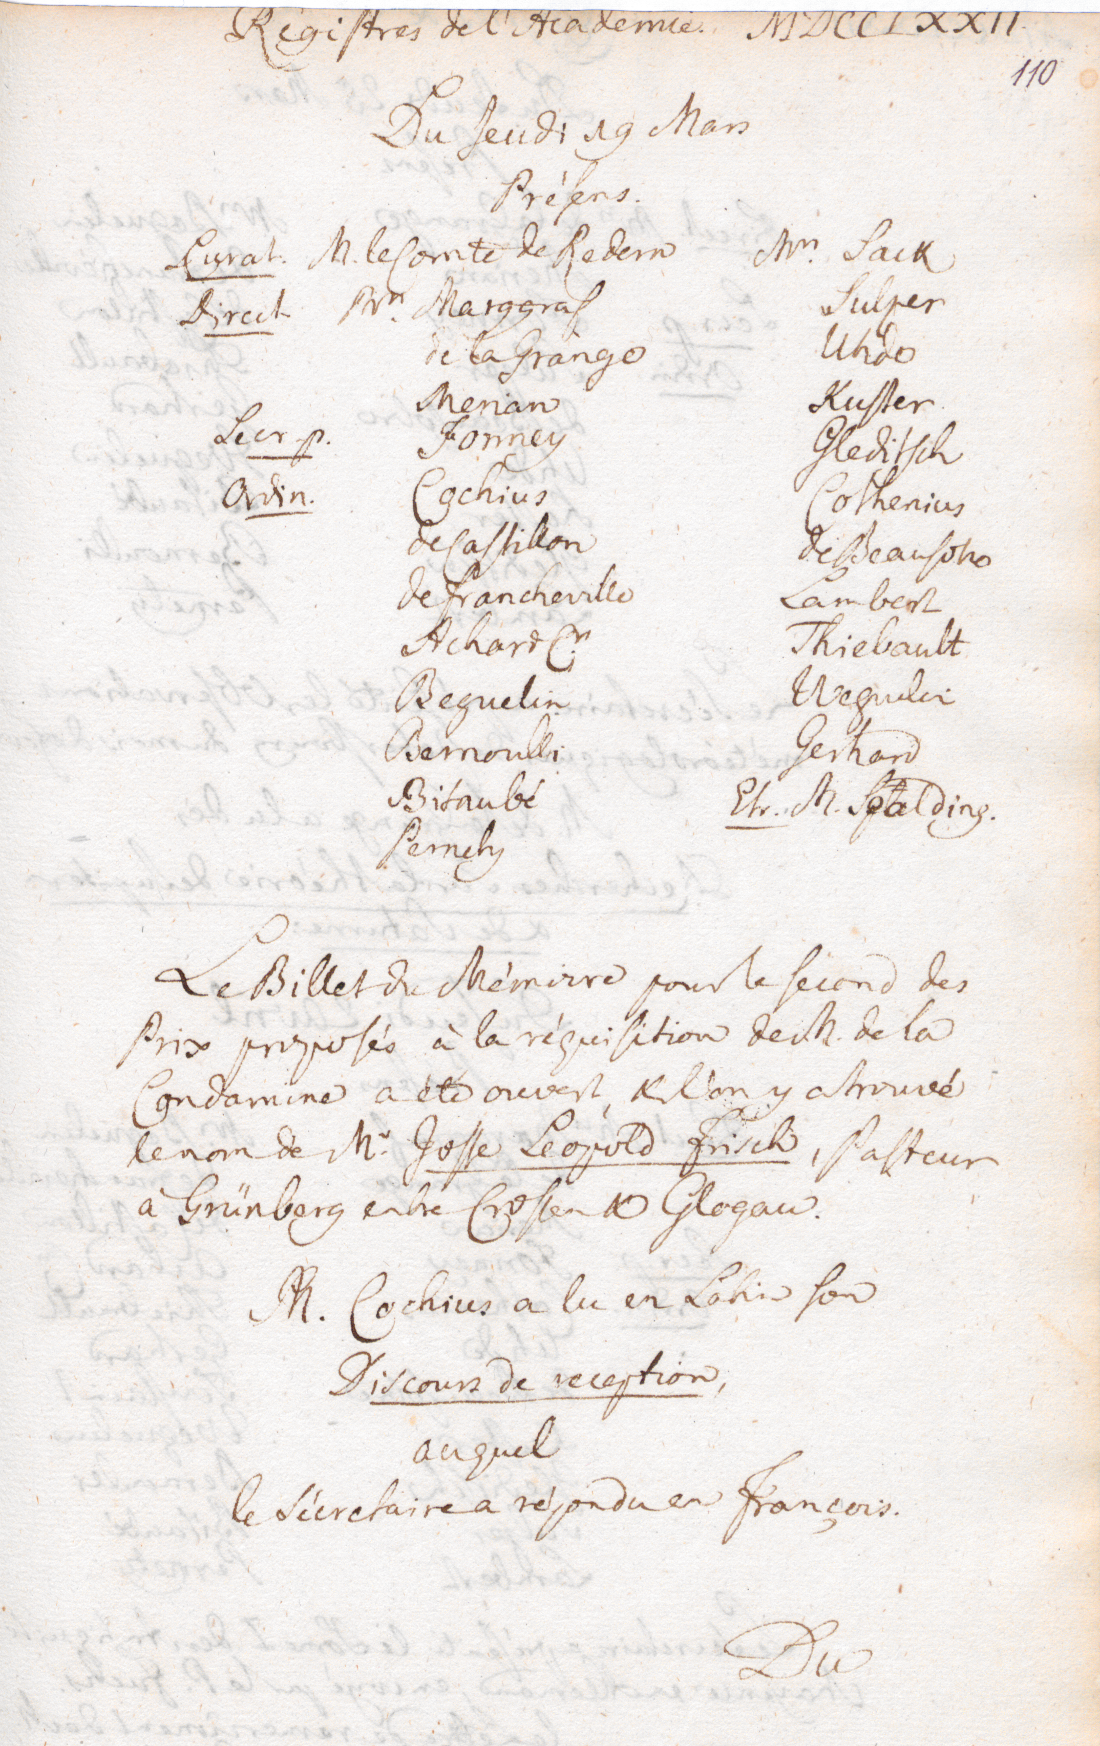 Régistres de l'Academie. MDCCLXXII.
110
Du Jeudi 19 Mars
Présens.
Curat. M. le Comte de Redern
Direct. Mrs. Marggraf
de la Grange
Merian
Secr. p. Formey
Ordin. Cochius
de Castillon
de Francheville
Achard
Beguelin
Bernoulli
Bitaubé
Pernety
Mrs. Sack
Sulzer
Uhdo
Kuster
Gleditsch
Cothenius
de Beausobre
Lambert
Thiebault
Weguelin
Gerhard
Etr. M. Spalding.
Le Billet du Mémoire pour le second des
Prix proposés à la réquisition de M. de la
Condamine a été ouvert, & l'on y a trouvé
le nom de Mr. Josse Léopold Frisch, Pasteur
à Grünberg entre Crossen & Glogau.
M. Cochius a lu en Latin son
Discours de reception,
auquel
le Sécretaire a répondu en François.
Du